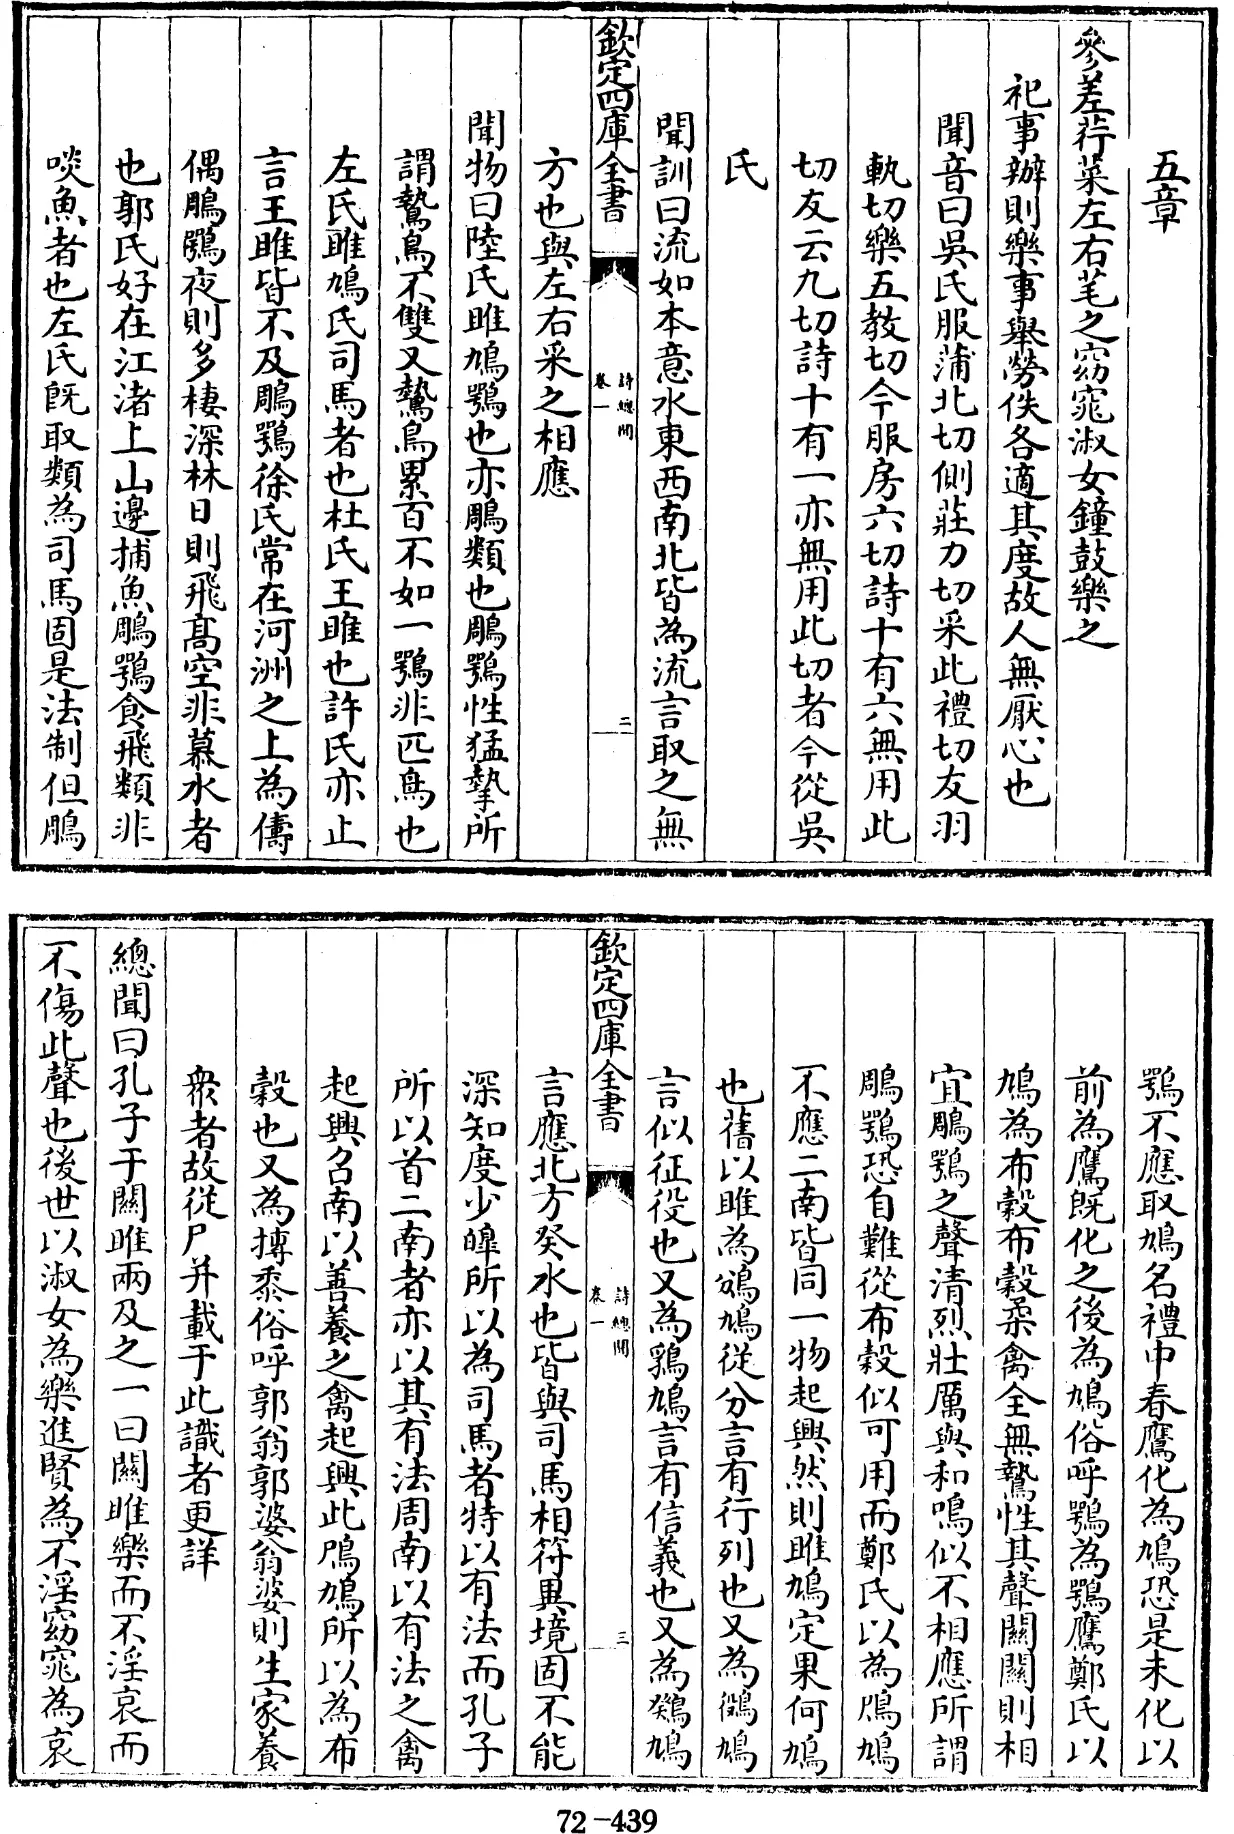 五章
參差荇菜左右芼之窈窕淑女鐘鼓樂之
祀事辦則樂事舉勞佚各適其度故人無厭心也
聞音曰吳氏服蒲北切側莊力切采此禮切友羽
軌切樂五教切今服房六切詩十有六無用此
切友云九切詩十有一亦無用此切者今從吳
氏
聞訓曰流如本意水東西南北皆為流言取之無
欽定四庫全書
詩總聞
卷一
二
方也與左右采之相應
聞物曰陸氏雎鳩鶚也亦鵰類也鵰鶚性猛摯所
謂鷙鳥不雙又鷙鳥累百不如一鶚非匹鳥也
左氏雎鳩氏司馬者也杜氏王雎也許氏亦止
言王雎皆不及鵰鶚徐氏常在河洲之上為儔
偶鵰鶚夜則多棲深林日則飛高空非慕水者
也郭氏好在江渚上山邊捕魚鵰鶚食飛類非
啖魚者也左氏既取類為司馬固是法制但鵰
鶚不應取鳩名禮中春鷹化為鳩恐是未化以
前為鷹既化之後為鳩俗呼鶚為鶚鷹鄭氏以
鳩為布穀布穀柔禽全無鷙性其聲關關則相
宜鵰鶚之聲清烈壯厲與和鳴似不相應所謂
鵰鶚恐自難從布穀似可用而鄭氏以為鳲鳩
不應二南皆同一物起興然則雎鳩定果何鳩
也舊以雎為鳻鳩從分言有行列也又為鵴鳩
言似征役也又為鶉鳩言有信義也又為鷄鳩
欽定四庫全書
詩總聞
卷一
三
言應北方癸水也皆與司馬相符異境固不能
深知度少皥所以為司馬者特以有法而孔子
所以首二南者亦以其有法周南以有法之禽
起興召南以善養之禽起興此鳲鳩所以為布
穀也又為摶黍俗呼郭翁郭婆翁婆則生家養
衆者故從尸并載于此識者更詳
總聞曰孔子于關雎兩及之一曰關雎樂而不淫哀而
不傷此聲也後世以淑女為樂進賢為不淫窈窕為哀
72-439